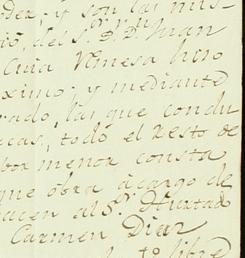 der, y son las mis-
sio, del S.r D.n Juan
Cuia Vinesa hizo
oximo; y mediante
rado, las que condu
acas, todo el resto de
bor menor consta
que obra à cargo de
hacen al S.r Hurtado
Carmen Diaz
libre